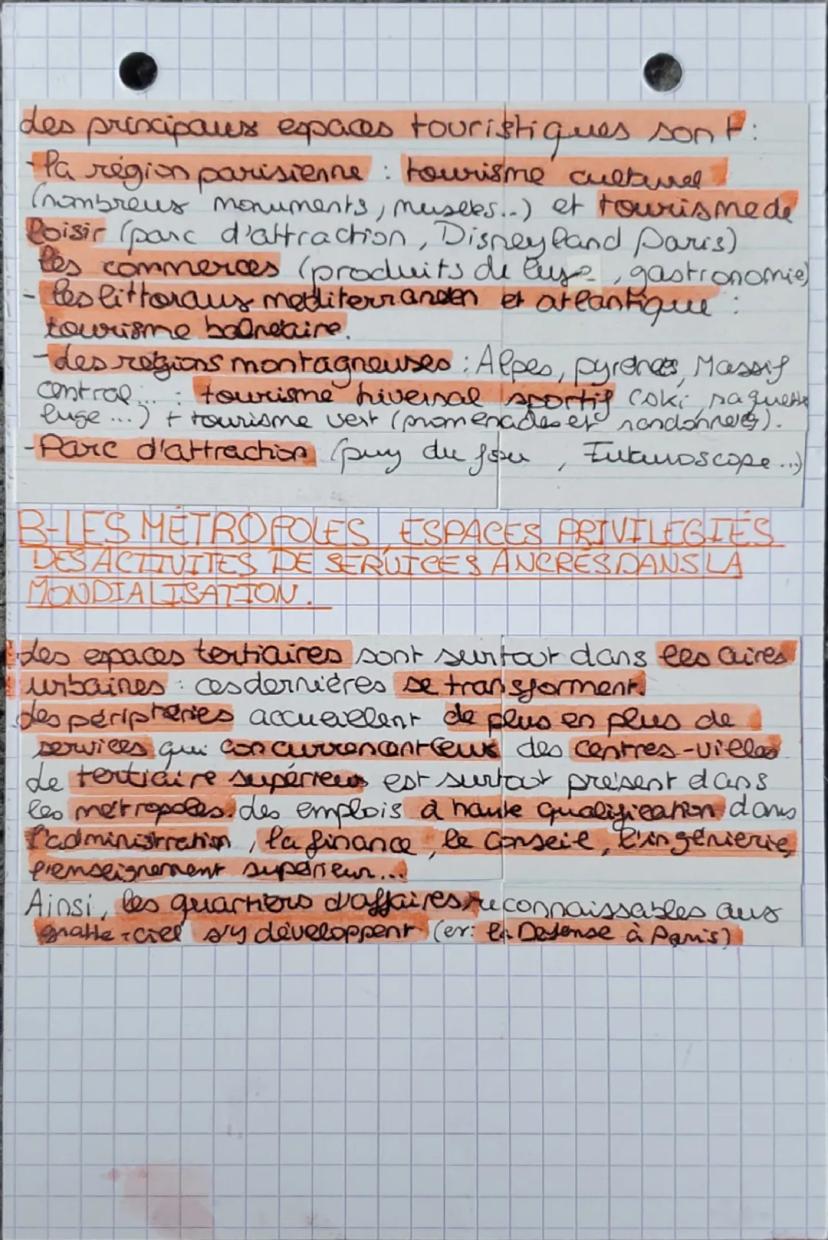 Les principaux espaces touristiques sont :
- la région parisienne : tourisme culturel
(nombreux monuments, musées..) et tourisme de
loisir (parc d'attraction, Disneyland Paris)
les commerces (produits de luxe, gastronomie)
- les littoraux méditerranéen et atlantique :
tourisme balnéaire.
- des régions montagneuses : Alpes, pyrénées, Massif
central... : tourisme hivernal sportif (ski, raquette
luge ...) + tourisme vert (promenades et randonnées).
- Parc d'attraction (puy du fou, Futuroscope...)
B-LES MÉTROPOLES, ESPACES PRIVILEGIÉS
DES ACTIVITES DE SERVICES ANCRÉS DANS LA
MONDIALISATION.
Les espaces tertiaires sont surtout dans les aires
urbaines : ces dernières se transforment.
Les périphéries accueuellent de plus en plus de
services qui concurrencent ceux des centres-villes
Le tertiaire supérieur est surtout présent dans
les métropoles. des emplois à haute qualification dans
l'administration, la finance, le conseil, l'ingénierie,
l'enseignement supérieur...
Ainsi, les quartiers d'affaires reconnaissables aux
gratte-ciel s'y développent (ex: la Défense à Paris)